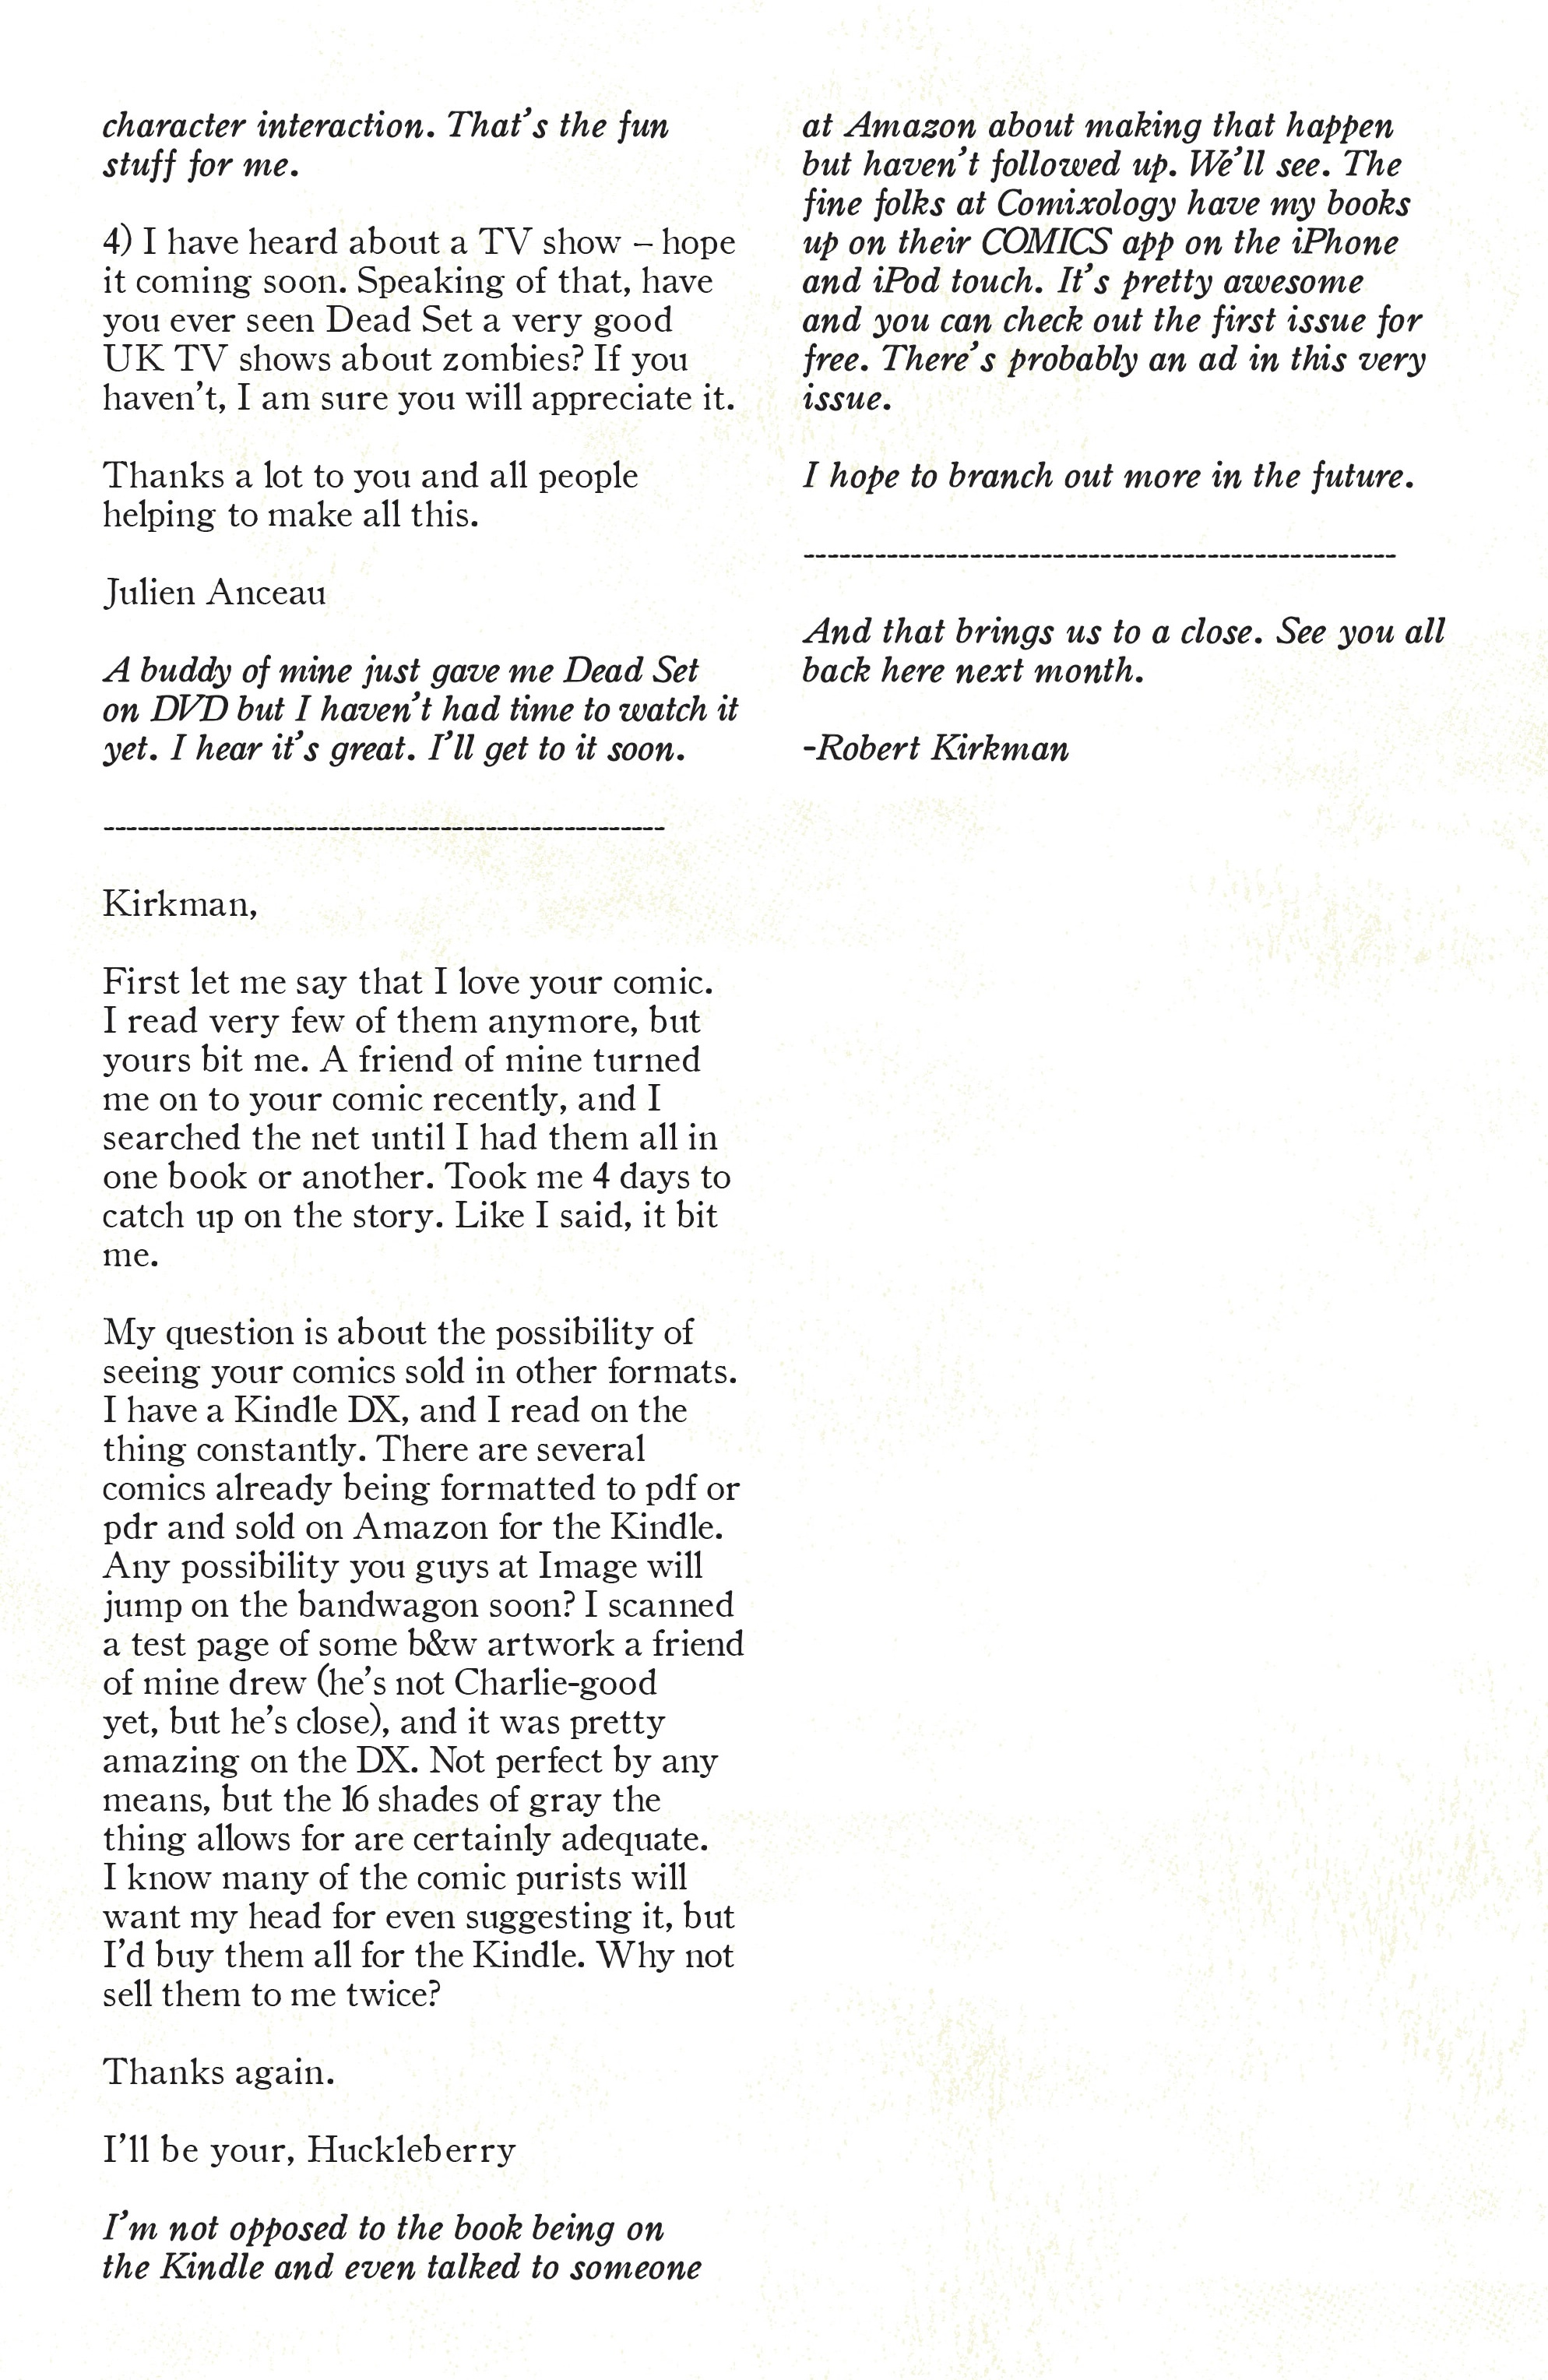 character interaction. That's the fun
stuff for me.
4) I have heard about a TV show – hope
it coming soon. Speaking of that, have
you ever seen Dead Set a very good
UK TV shows about zombies? If you
haven't, I am sure you will appreciate it.
Thanks a lot to you and all people
helping to make all this.
Julien Anceau
A buddy of mine just gave me Dead Set
on DVD but I haven't had time to watch it
yet. I hear it's great. I'll get to it soon.
--------------------------------------------------
Kirkman,
First let me say that I love your comic.
I read very few of them anymore, but
yours bit me. A friend of mine turned
me on to your comic recently, and I
searched the net until I had them all in
one book or another. Took me 4 days to
catch up on the story. Like I said, it bit
me.
My question is about the possibility of
seeing your comics sold in other formats.
I have a Kindle DX, and I read on the
thing constantly. There are several
comics already being formatted to pdf or
pdr and sold on Amazon for the Kindle.
Any possibility you guys at Image will
jump on the bandwagon soon? I scanned
a test page of some b&w artwork a friend
of mine drew (he's not Charlie-good
yet, but he's close), and it was pretty
amazing on the DX. Not perfect by any
means, but the 16 shades of gray the
thing allows for are certainly adequate.
I know many of the comic purists will
want my head for even suggesting it, but
I'd buy them all for the Kindle. Why not
sell them to me twice?
Thanks again.
I'll be your, Huckleberry
I'm not opposed to the book being on
the Kindle and even talked to someone
at Amazon about making that happen
but haven't followed up. We'll see. The
fine folks at Comixology have my books
up on their COMICS app on the iPhone
and iPod touch. It's pretty awesome
and you can check out the first issue for
free. There's probably an ad in this very
issue.
I hope to branch out more in the future.
--------------------------------------------------
And that brings us to a close. See you all
back here next month.
-Robert Kirkman